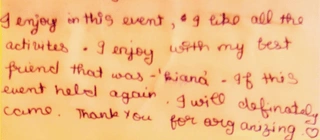 I enjoy in this event, I like all the
activites. I enjoy with my best
friend that was -'Riana'- If this
event held again. I will definately
came. Thank You for organizing. ☺